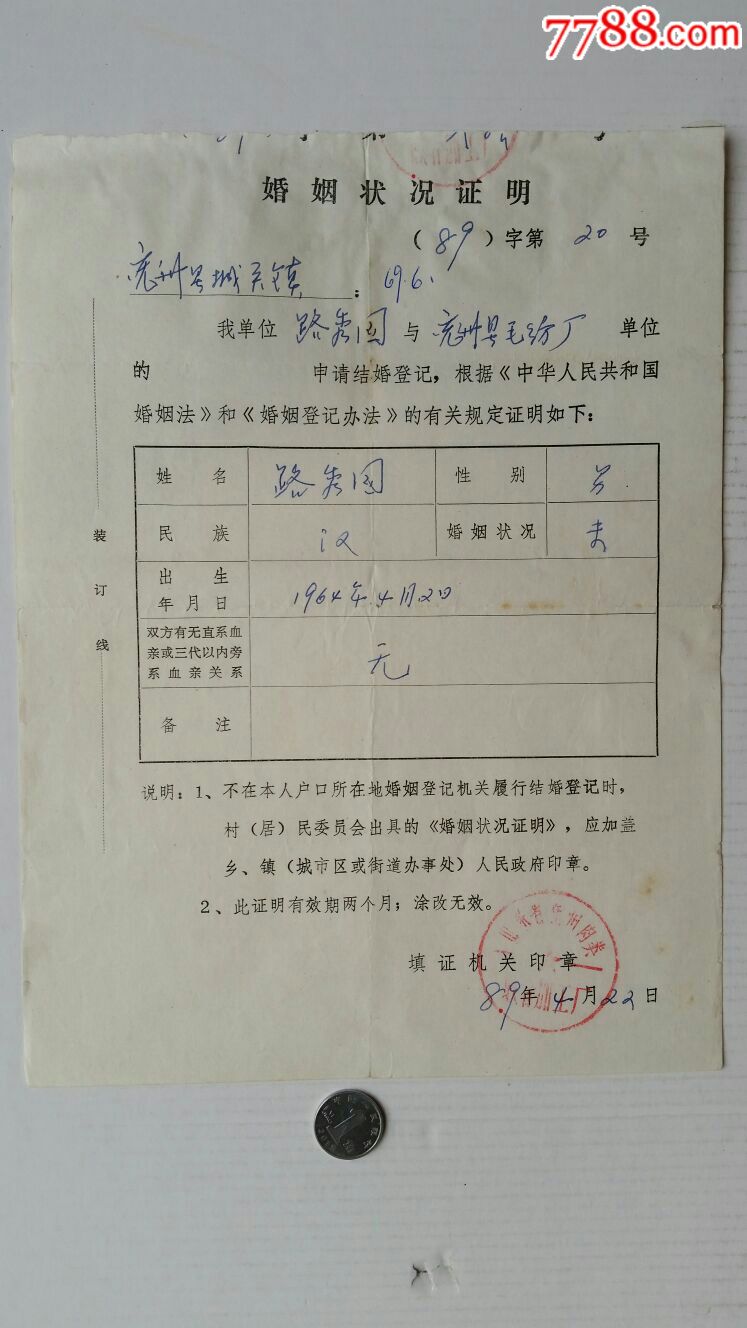 7788.com
婚姻状况证明
(89)字第 20 号
兖州县城关镇：69.6.
我单位 路秀国 与 兖州县毛纺厂 单位
的 申请结婚登记，根据《中华人民共和国
婚姻法》和《婚姻登记办法》的有关规定证明如下：
姓名 路秀国 性别 男
民族 汉 婚姻状况 未
出生
年月日 1964年4月20日
双方有无直系血
亲或三代以内旁
系血亲关系 无
备注
装订线
说明：1、不在本人户口所在地婚姻登记机关履行结婚登记时，
村（居）民委员会出具的《婚姻状况证明》，应加盖
乡、镇（城市区或街道办事处）人民政府印章。
2、此证明有效期两个月；涂改无效。
填证机关印章
89年4月22日